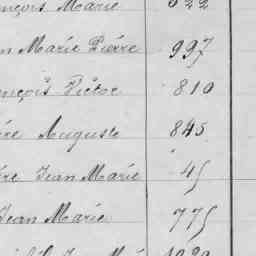 Marie 622
n Marie Pierre 997
nçois Victor 810
re Auguste 845
re Jean Marie 45
Jean Marie 775